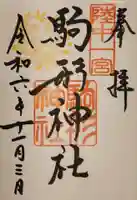 奉拝
陸中一宮
駒形神社
駒形神社
令和六年十一月三日